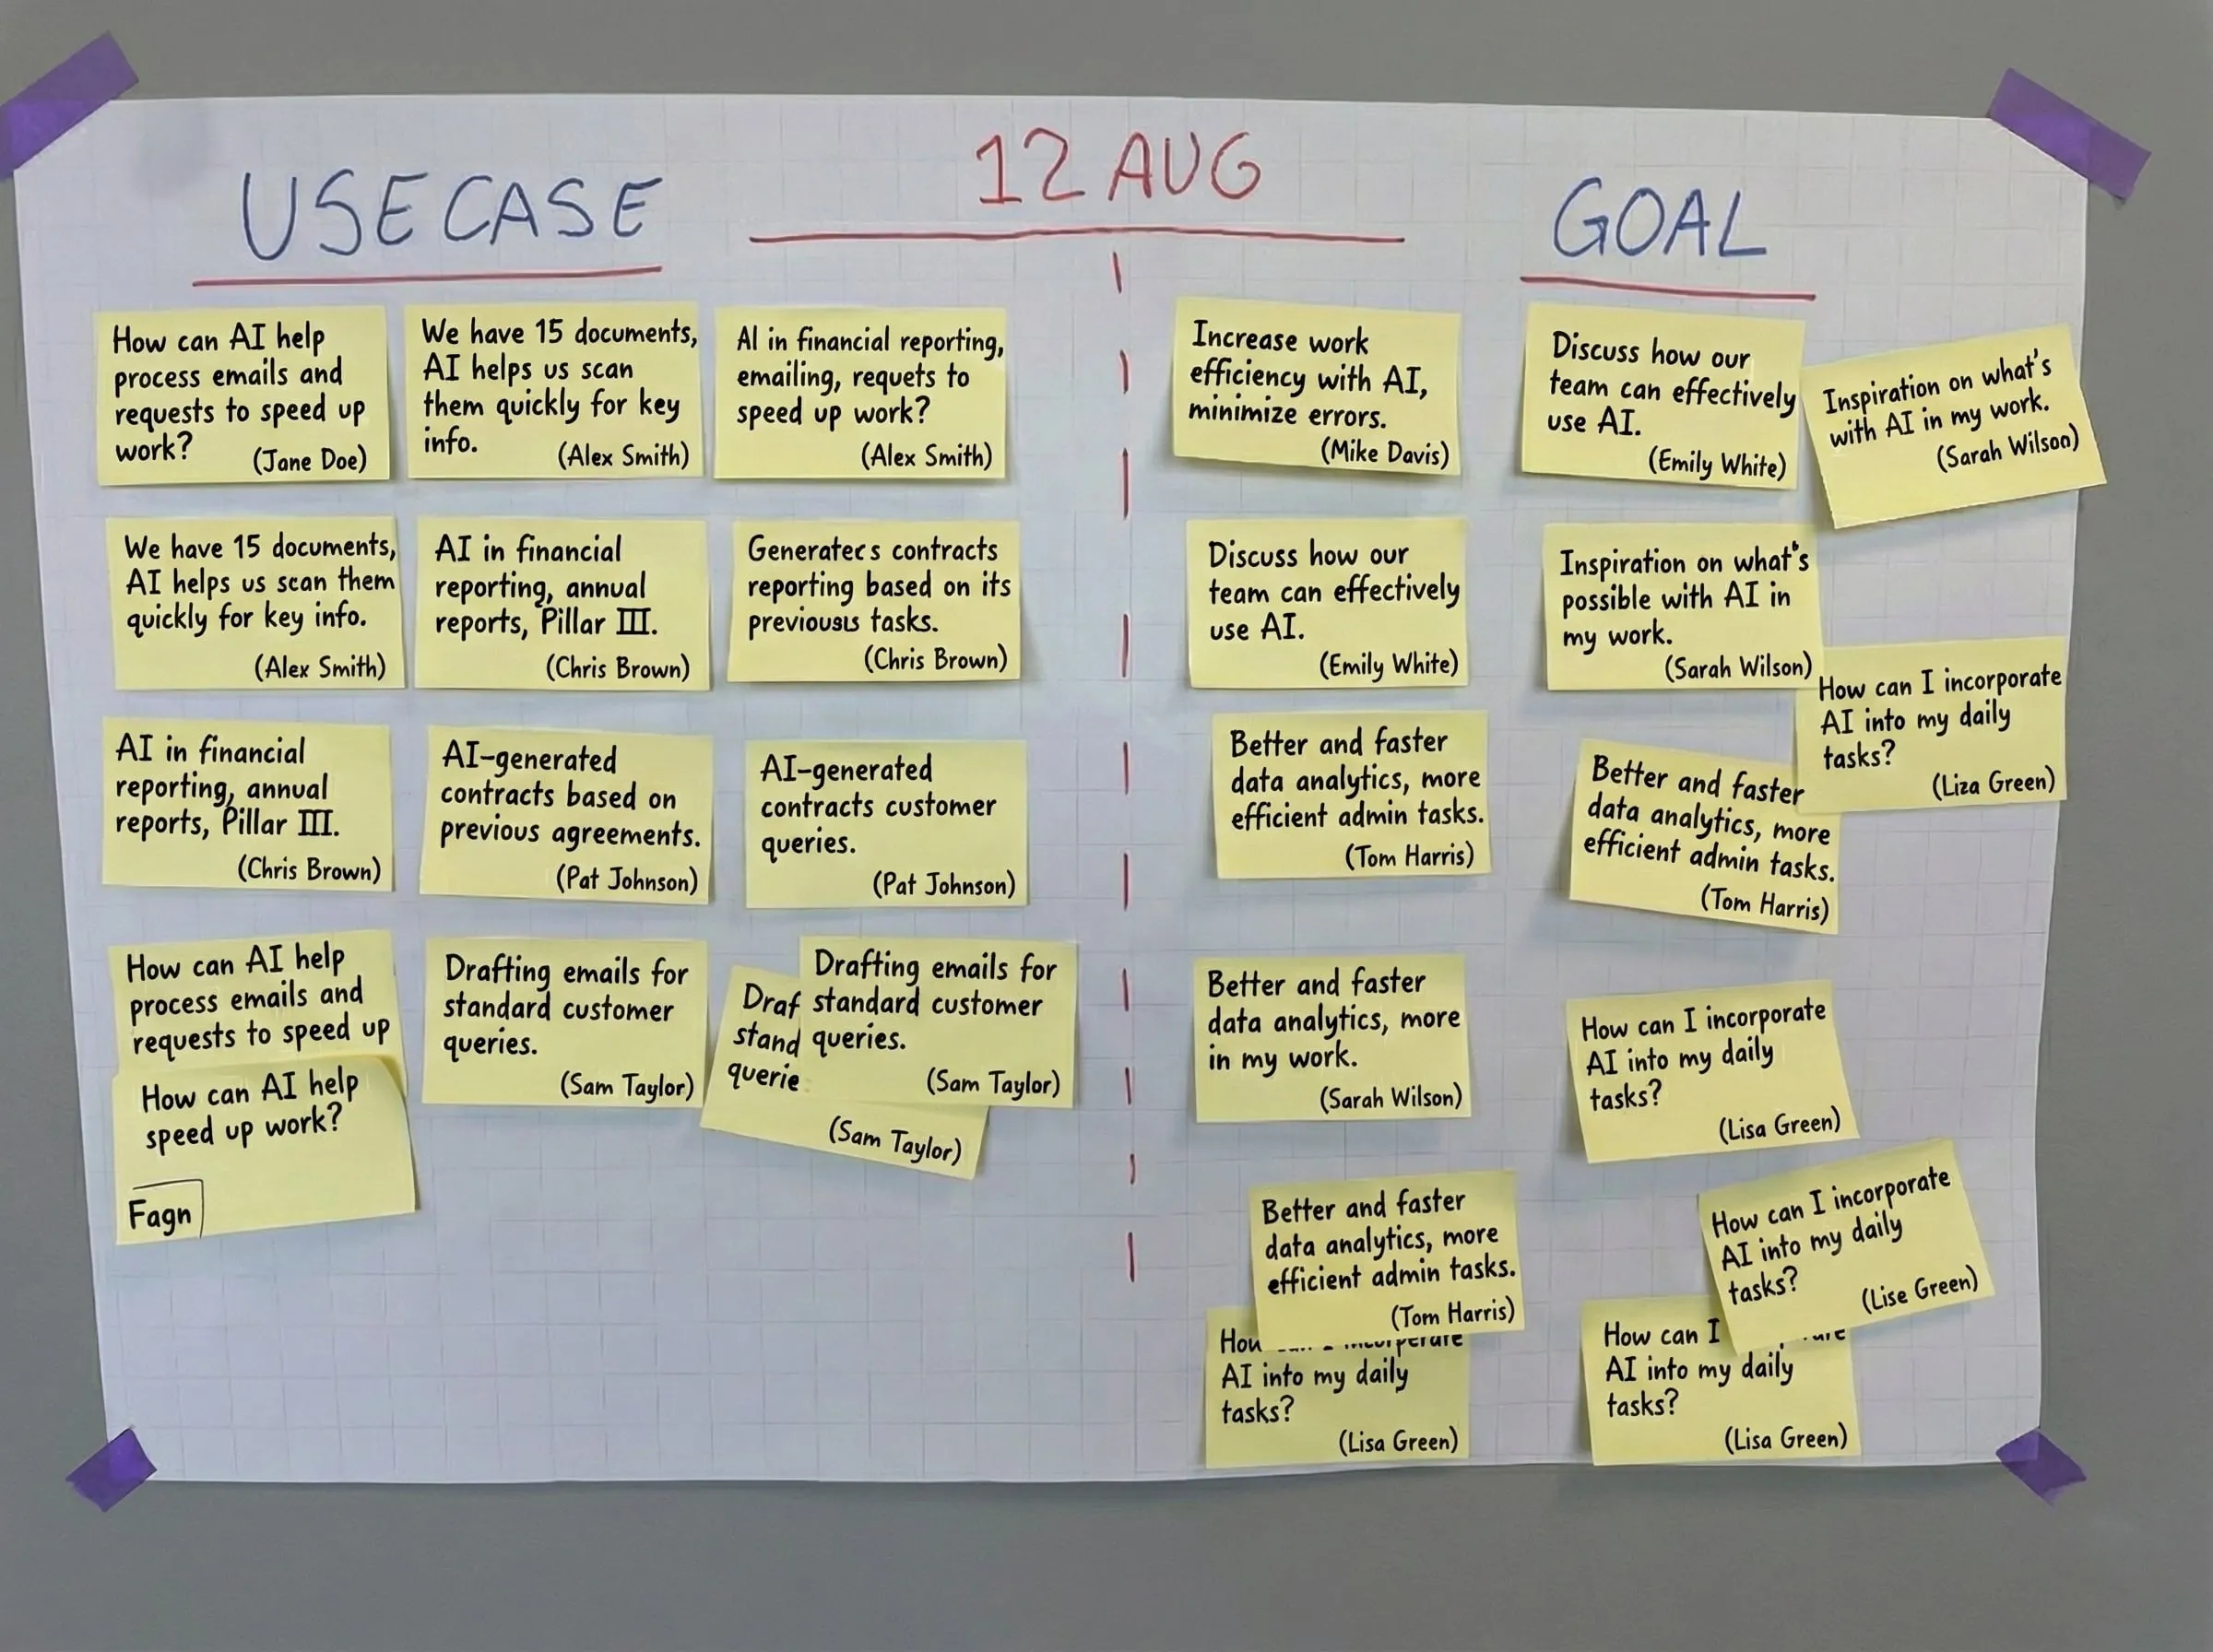 12 AUG
USECASE
How can AI help
process emails and
requests to speed up
work?
(Jane Doe)
We have 15 documents,
AI helps us scan
them quickly for key
info.
(Alex Smith)
AI in financial reporting,
emailing, requets to
speed up work?
(Alex Smith)
We have 15 documents,
AI helps us scan them
quickly for key info.
(Alex Smith)
AI in financial
reporting, annual
reports, Pillar III.
(Chris Brown)
contracts
reporting based on its
tasks.
(Chris Brown)
AI in financial
reporting, annual
reports, Pillar III.
(Chris Brown)
AI-generated
contracts based on
previous agreements.
(Pat Johnson)
AI-generated
contracts customer
queries.
(Pat Johnson)
How can AI help
process emails and
requests to speed up
How can AI help
speed up work?
Fagn
Drafting emails for
standard customer
queries.
(Sam Taylor)
Draf
stand
querie
(Sam Taylor)
Drafting emails for
standard customer
queries.
(Sam Taylor)
GOAL
Increase work
efficiency with AI,
minimize errors.
(Mike Davis)
Discuss how our
team can effectively
use AI.
(Emily White)
Inspiration on what's
with AI in my work.
(Sarah Wilson)
Discuss how our
team can effectively
use AI.
(Emily White)
Inspiration on what's
possible with AI in
my work.
(Sarah Wilson)
How can I incorporate
AI into my daily
tasks?
(Liza Green)
Better and faster
data analytics, more
efficient admin tasks.
(Tom Harris)
Better and faster
data analytics, more
efficient admin tasks.
(Tom Harris)
Better and faster
data analytics, more
in my work.
(Sarah Wilson)
How can I incorporate
AI into my daily
tasks?
(Lisa Green)
Better and faster
data analytics, more
efficient admin tasks.
(Tom Harris)
How can I incorporate
AI into my daily
tasks?
(Lise Green)
AI into my daily
tasks?
(Lisa Green)
How can I
AI into my daily
tasks?
(Lisa Green)